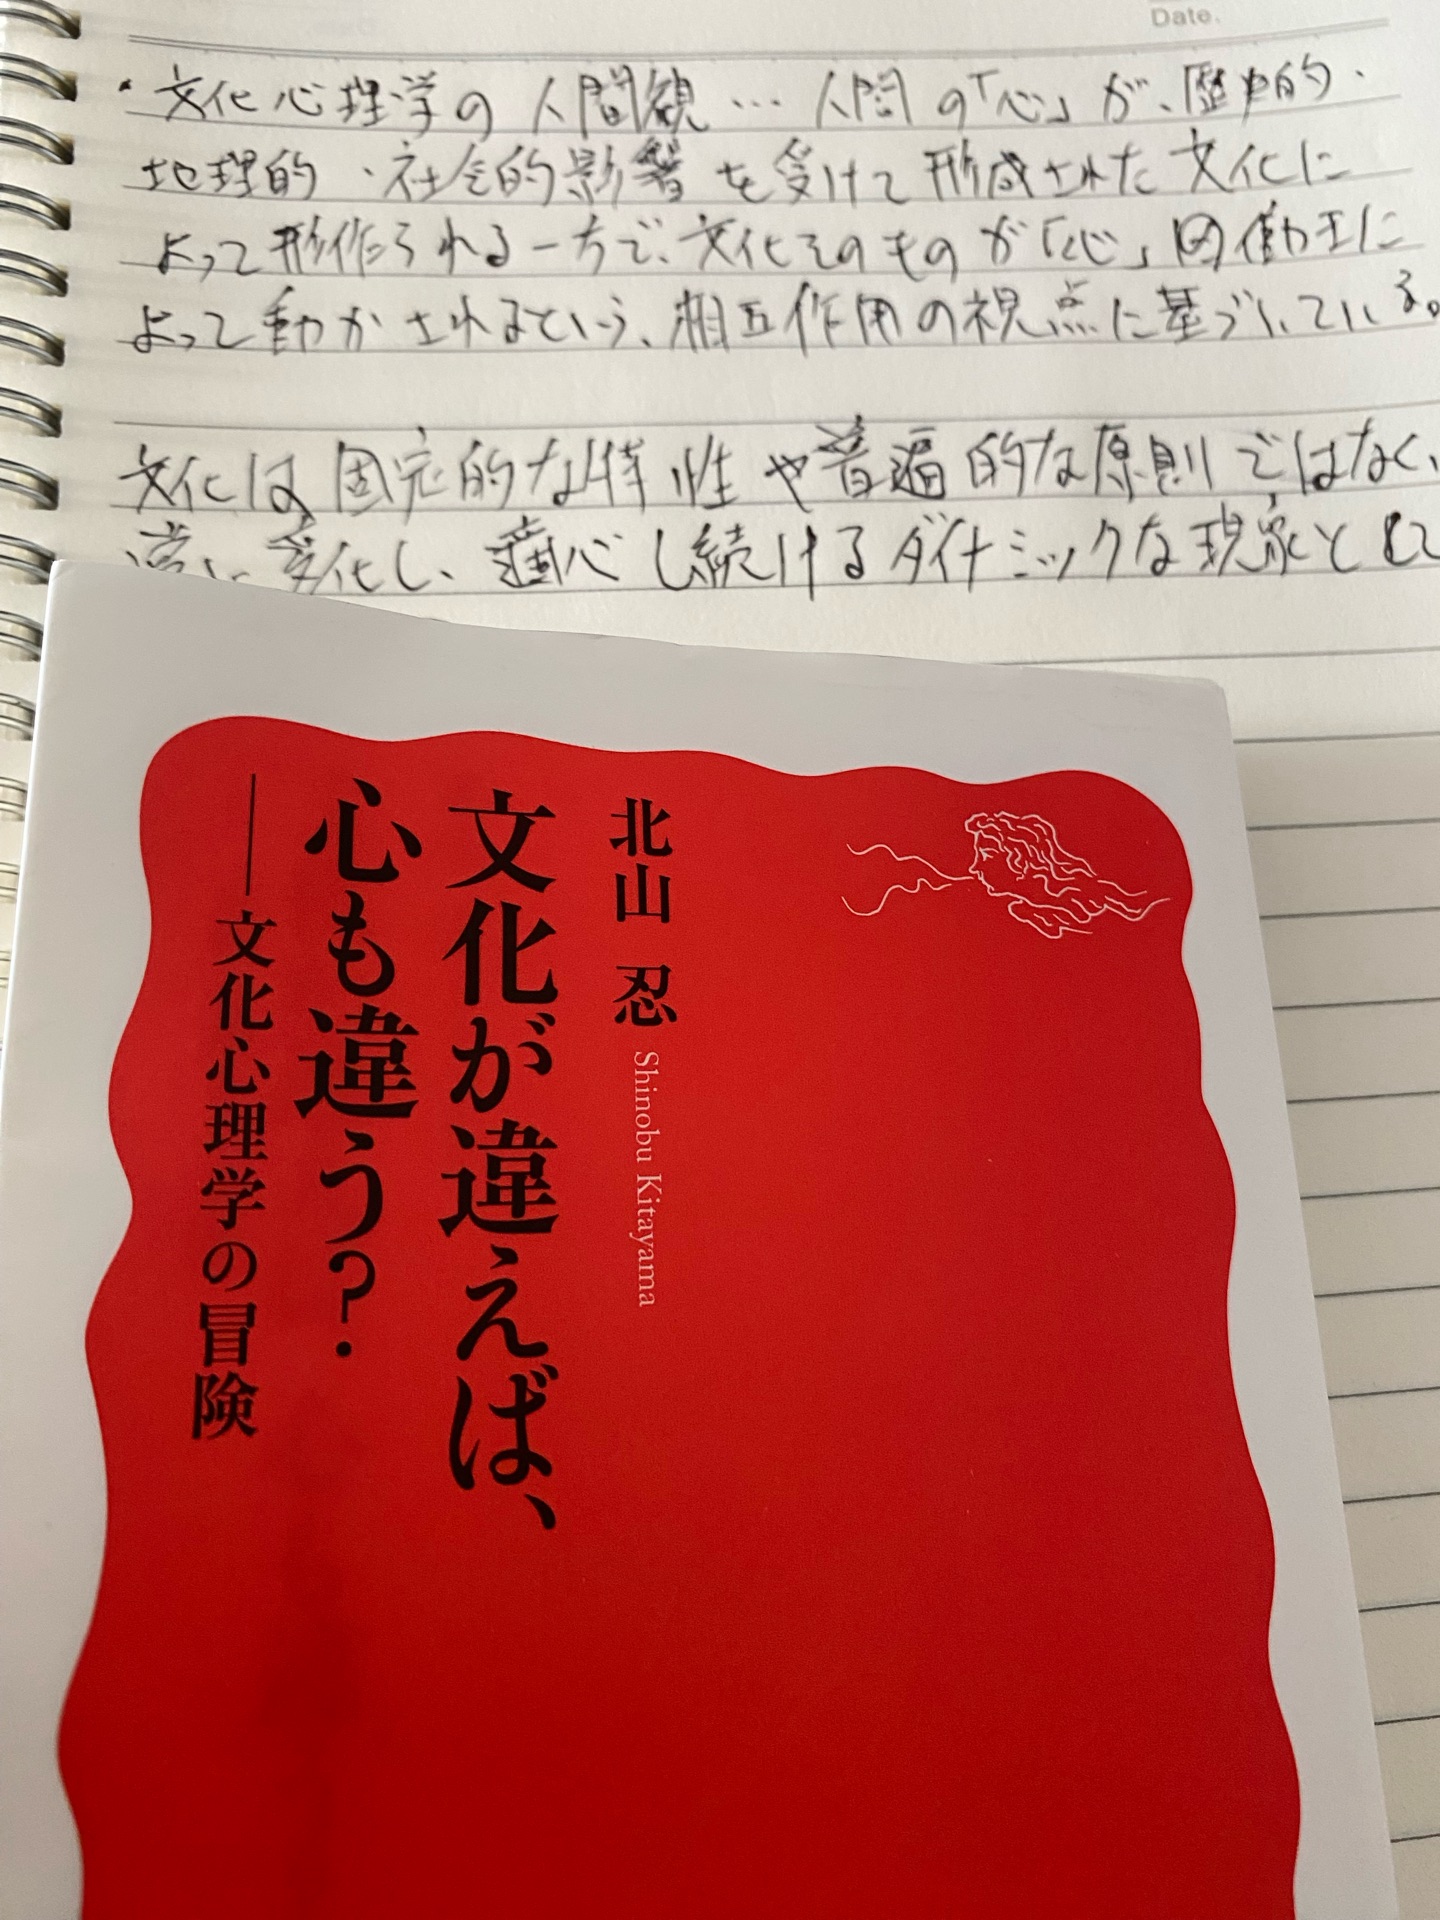 Date.
・文化心理学の人間観…人間の「心」が、歴史的・
地理的・社会的影響を受けて形成された文化に
よって形作られる一方で、文化そのものが「心」の働きに
よって動かされるという、相互作用の視点に基づいている。
文化は固定的な特性や普遍的な原則ではなく、
常に変化し、適応し続けるダイナミックな現象として
北山 忍 Shinobu Kitayama
文化が違えば、
心も違う?
――文化心理学の冒険